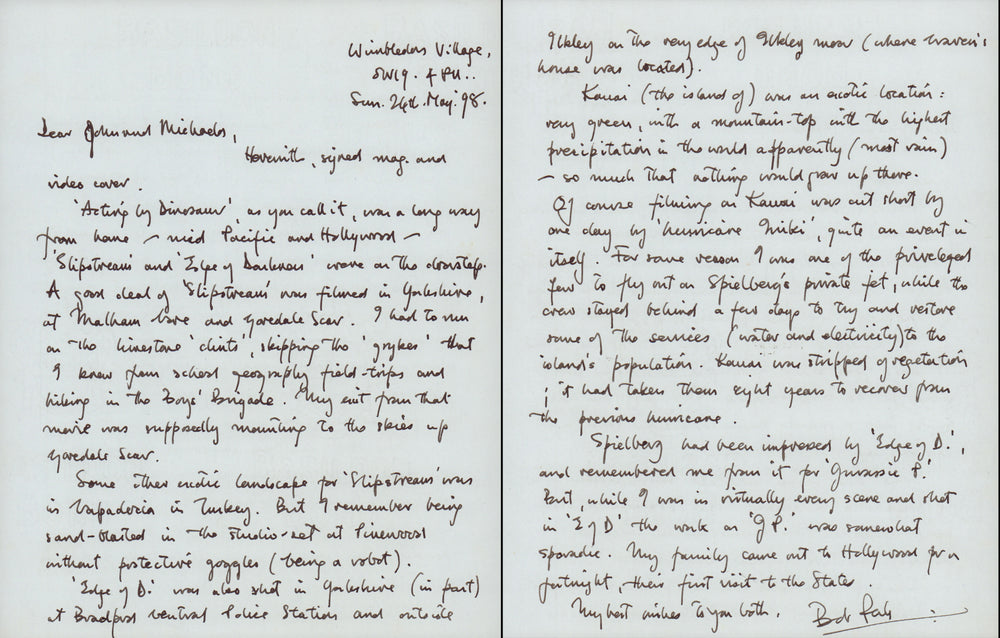 Wimbledon Village,
SW19. 4PU..
Sun. 24th. May. '98.
Dear John and Michaela,
Herewith, signed mag. and
video cover.
'Acting by Dinosaur', as you call it, was a long way
from home – mid Pacific and Hollywood –
'Slipstream' and 'Edge of Darkness' were on the doorstep.
A good deal of 'Slipstream' was filmed in Yorkshire,
at Malham Cove and Goredale Scar. I had to run
on the limestone 'clints', skipping the 'grykes' that
I knew from school geography field-trips and
hiking in the Boys' Brigade. My exit from that
movie was supposedly mounting to the skies up
Goredale Scar.
Some other exotic landscape for 'Slipstream' was
in Capadocia in Turkey. But I remember being
sand-blasted in the studio-set at Pinewood
without protective goggles (being a robot).
'Edge of D.' was also shot in Yorkshire (in part)
at Bradford Central Police Station and outside
Ilkley on the very edge of Ilkley moor (where Craven's
house was located).
Kauai (the island of) was an exotic location:
very green, with a mountain-top with the highest
precipitation in the world apparently (most rain)
– so much that nothing would grow up there.
Of course filming on Kauai was cut short by
one day by 'hurricane Iniki', quite an event in
itself. For some reason I was one of the priveleged
few to fly out on Spielberg's private jet, while the
crew stayed behind a few days to try and restore
some of the services (water and electricity) to the
island's population. Kauai was stripped of vegetation
; it had taken them eight years to recover from
the previous hurricane.
Spielberg had been impressed by 'Edge of D.',
and remembered me from it for 'Jurassic P.'
But, while I was in virtually every scene and shot
in 'E of D' the work on 'J P.' was somewhat
sporadic. My family came out to Hollywood for a
fortnight, their first visit to the States.
My best wishes to you both. Bob Peck